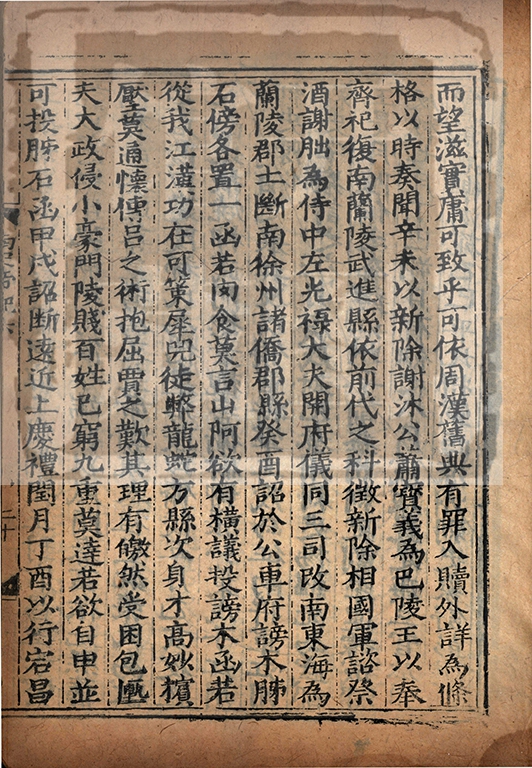 而望滋實庸可致乎可依周漢舊典有罪入贖外詳為條
格以時奏聞辛未以新除謝沐公蕭寶義為巴陵王以奉
齊祀復南蘭陵武進縣依前代之科徵新除相國軍諮祭
酒謝朏為侍中左光祿大夫開府儀同三司改南東海為
蘭陵郡土斷南徐州諸僑郡縣癸酉詔於公車府謗木肺
石傍各置一函若肉食莫言山阿欲有橫議投謗木函若
從我江漢功在可策犀兕徒弊龍蛇方縣次身才高妙擯
壓莫通懷傅呂之術抱屈賈之歎其理有皦然受困包匭
夫大政侵小豪門陵賤百姓已窮九重莫達若欲自申並
可投肺石函甲戌詔斷遠近上慶禮閏月丁酉以行宕昌